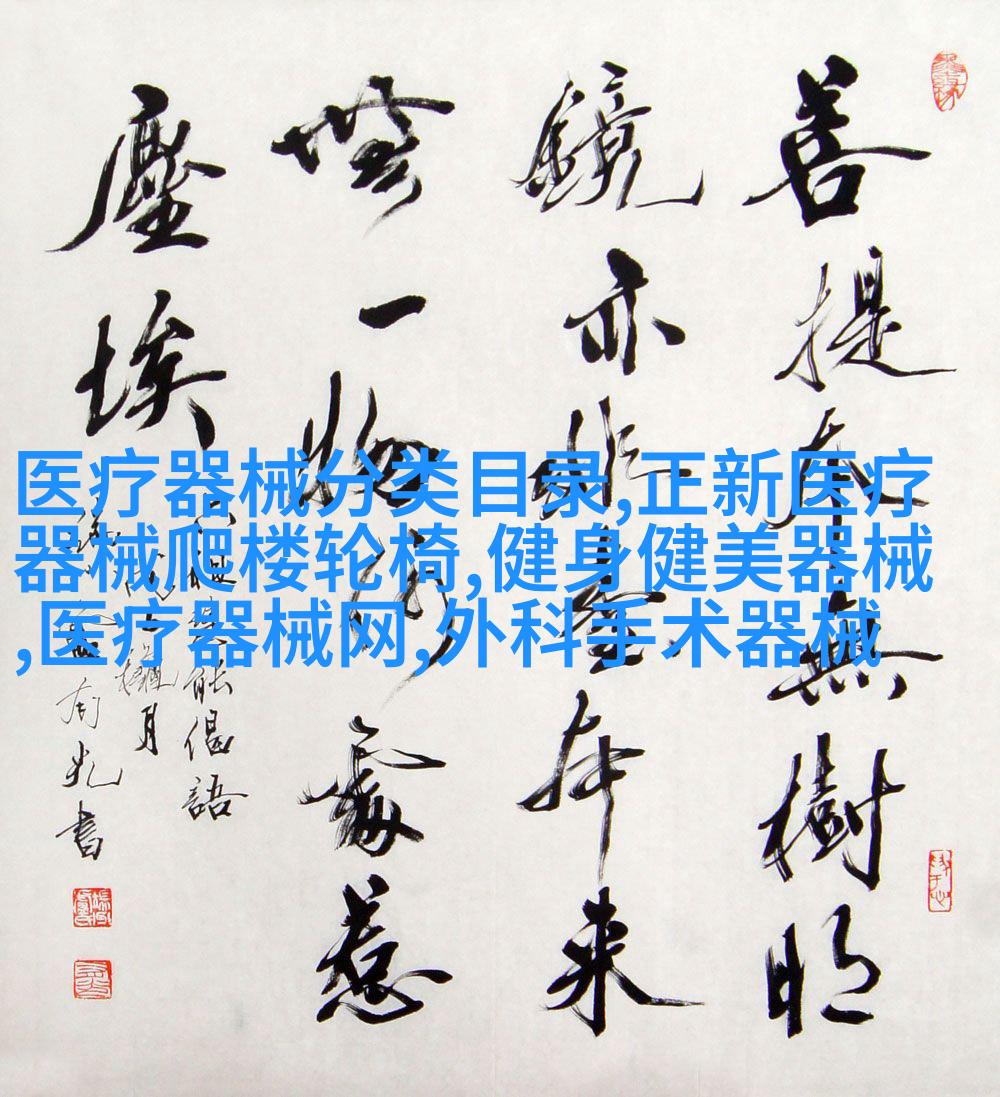 菩提本無樹明
鏡亦非臺本来
無一物何處惹
塵埃
能偈語
月
光書
医疗器械分类目录,正新医疗
器械爬楼轮椅,健身健美器械
,医疗器械网,外科手术器械